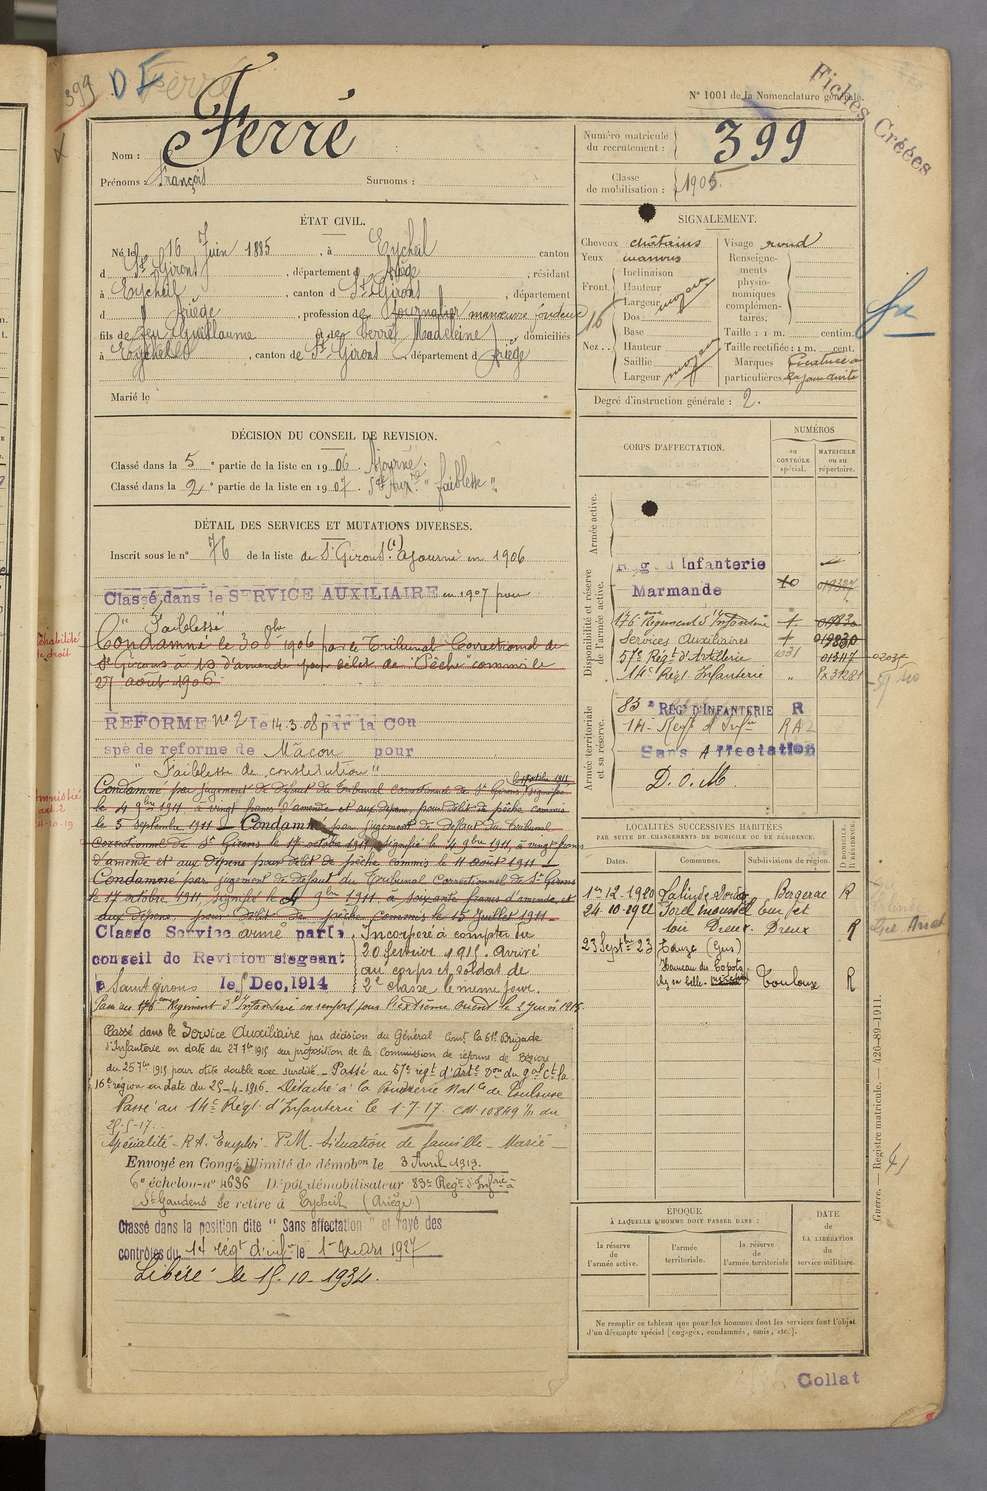 399
D F
Ferré
Fiches Créées
N° 1001 de la Nomenclature générale.
Nom : Ferré
Prénoms : François Surnoms :
Numéro matricule du recrutement : 399
Classe de mobilisation : 1905.
ÉTAT CIVIL.
Né le 16 Juin 1885, à Eycheil canton
d St Girons, département d Ariège, résidant
à Eycheil, canton d St Girons, département
d Ariège, profession de Journalier manœuvre fondeur
fils de feu Guillaume et de Ferré Madeleine domiciliés
à Eycheil, canton de St Girons département d Ariège
Marié le
SIGNALEMENT.
Cheveux châtains
Yeux marrons
Front. Inclinaison
Hauteur
Largeur moyen
Nez . . Dos
Base
Hauteur
Saillie
Largeur moyen
16
Visage rond
Renseignements physionomiques complémentaires.
Taille : 1 m. centim.
Taille rectifiée : 1 m. cent.
Marques particulières Cicatrice à la joue droite
Degré d'instruction générale : 2.
DÉCISION DU CONSEIL DE REVISION.
Classé dans la 5e partie de la liste en 1906. Ajourné.
Classé dans la 2e partie de la liste en 1907. Sce Auxre "faiblesse"
DÉTAIL DES SERVICES ET MUTATIONS DIVERSES.
Inscrit sous le n° 76 de la liste de St Girons. Ajourné en 1906
Classé dans le SERVICE AUXILIAIRE en 1907 pour
"Faiblesse"
Condamné le 30 8bre 1906 par le Tribunal Correctionnel de
St Girons à 10 d'amende pour délit de "Pêche" commis le
27 août 1906
Réhabilité de droit
REFORME N° 2 le 14-3-08 par la Con
spé de reforme de Mâcon pour
"Faiblesse de constitution"
Amnistié
Condamné par jugement de défaut du Tribunal Correctionnel de St Girons signifié
le 4 9bre 1911 à vingt francs d'amende et aux dépens, pour délit de pêche commis
le 5 septembre 1911 — Condamné par jugement de défaut du Tribunal
Correctionnel de St Girons le 17 octobre 1911 signifié le 4 9bre 1911, à vingt francs
d'amende et aux dépens pour délit de pêche commis le 11 août 1911 —
Condamné par jugement de défaut du Tribunal Correctionnel de St Girons
le 17 octobre 1911, signifié le 4 9bre 1911 à soixante francs d'amende, et
aux dépens, pour délit de pêche commis le 15 Juillet 1911 —
Classé Service armé par le
conseil de Revision siegeant
à Saint girons le 5 Dec, 1914
Incorporé à compter du
20 février 1915. Arrivé
au corps et soldat de
2e classe le même jour.
Passé au 176eme Régiment d'Infanterie en renfort pour l'extrême orient le 2 Juin 1915.
Classé dans le Service Auxiliaire par décision du Général Comt la 61e Brigade
d'Infanterie en date du 27 7bre 1915 sur proposition de la commission de réforme de Béziers
du 25 7bre 1915 pour otite double avec surdité. — Passé au 57e regt d'Artie Don du gal Ct la
16e région en date du 25-4-1916. Détaché à la Poudrerie Natle de Toulouse
Passé au 14e Régt d'Infanterie le 1-7-17. CM. 10849 1/11 du
25-5-17.
Spécialité — R.A. Emploi — P.M. Situation de famille — Marié —
Envoyé en Congé illimité de démobon le 3 Avril 1919.
6e échelon n° 4636 Dépôt démobilisateur 83e Regt d'Infrie à
St Gaudens Se retire à Eycheil (Ariège)
Classé dans la position dite "Sans affectation" et rayé des
contrôles du 14 régt d'infie le 1er Mars 1927
Libéré le 15-10-1934.
CORPS D'AFFECTATION.
NUMÉROS
au CONTRÔLE spécial.
MATRICULE ou au répertoire.
Armée active.
Disponibilité et réserve de l'armée active.
Rég d'Infanterie
Marmande
176eme Régiment d'Infanterie
Services Auxiliaires 019830
57e Régt d'Artillerie 1031 013117
14e Régt Infanterie "
Armée territoriale et sa réserve.
83e RÉGt D'INFANTERIE R
14e Regt d'Infie R A 2
Sans Affectation
D. O. M.
LOCALITÉS SUCCESSIVES HABITÉES
PAR SUITE DE CHANGEMENTS DE DOMICILE OU DE RÉSIDENCE.
Dates. Communes. Subdivisions de région. D DOMICILE. R RÉSIDENCE.
1er-12-1920 Lalinde Dordogne Bergerac R
24-10-1922 Sorel Moussel Eur et
Loir Dreux. Dreux R
23 Septbre 23 Eauze (Gers)
Toulouse R
ÉPOQUE
À LAQUELLE L'HOMME DOIT PASSER DANS :
la réserve de l'armée active.
l'armée territoriale.
la réserve de l'armée territoriale.
DATE de LA LIBÉRATION du service militaire.
Ne remplir ce tableau que pour les hommes dont les services font l'objet
d'un décompte spécial (engagés, condamnés, omis, etc.).
Guerre. — Registre matricule. — 420-89-1911.
Collat